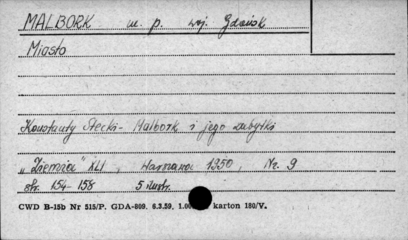 MALBORK m. p. woj. Gdańsk
Miasto
Konstanty Stecki - Malbork i jego zabytki
„Ziemia" XLI, Warszawa 1950, Nr. 9
str. 154-158 5 ilustr.
CWD B-15b Nr 515/P. GDA-809. 6.3.59. 1.00 karton 180/V.